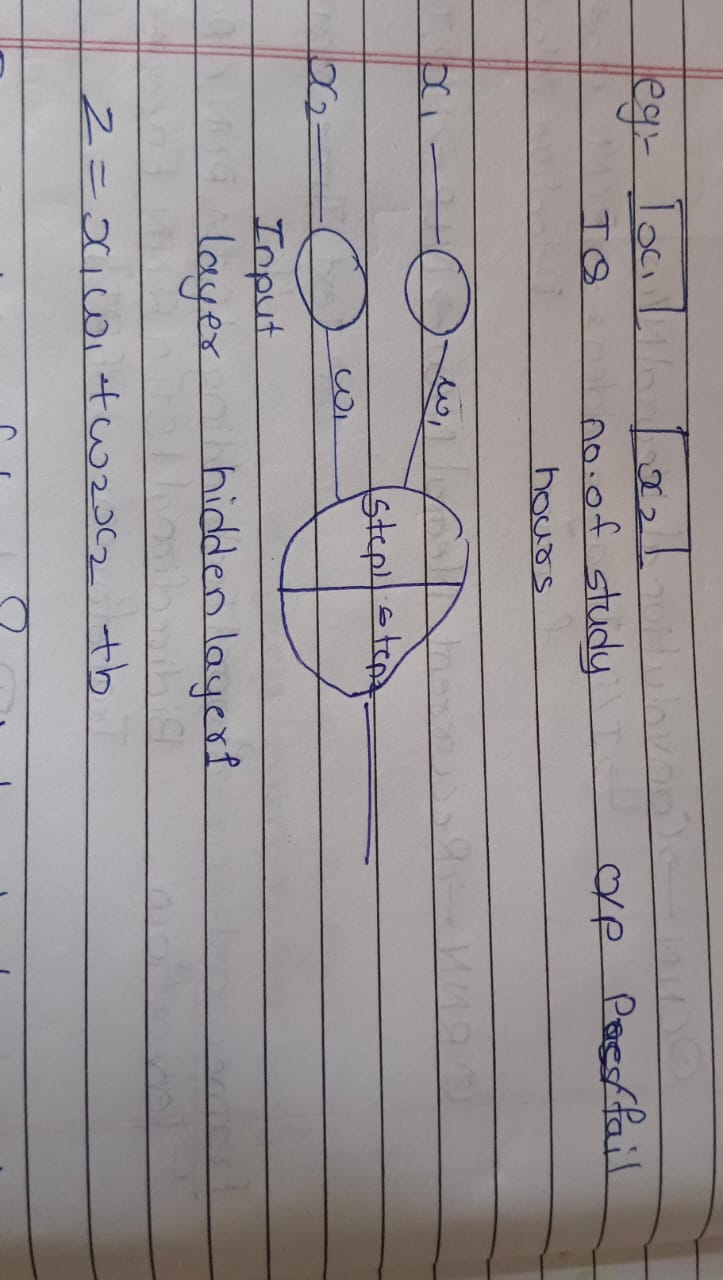 eg:- x1 x2
IQ no. of study o/p Pass/fail
hours
x1 w1
step1 step2
x2 w1
Input
layer hidden layer 1
z = x1w1 + w2x2 + b